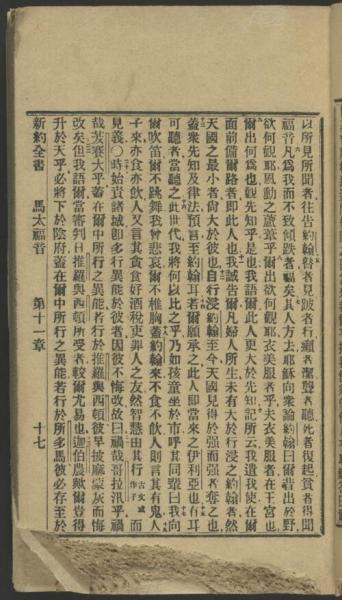 以所見所聞者往告約翰瞽者見跛者行癩者潔聾者聽死者復起貧者得聞
福音凡爲我而不致傾跌者福矣其人方去耶穌向衆論約翰曰爾曹出於野
欲何觀耶風動之蘆葦乎爾出欲何觀耶衣美服者乎夫衣美服者在王宮也
爾出何爲也觀先知乎是也我語爾此人更大於先知記所云我遣我使在爾
面前備爾路者卽此人也我誠告爾凡婦人所生未有大於行浸之約翰者然
天國之最小者猶大於彼也自行浸約翰至今天國見得於强而强者奪之也
蓋衆先知及律法預言至約翰耳若爾願承之此人卽當來之伊利亞也有耳
可聽者當聽之此世代我將何以比之乎乃如孩童坐於市呼其同輩曰我向
爾吹笛爾不跳舞我曾悲哀爾不椎胸蓋約翰來不食不飲人則言其有鬼人
子來亦食亦飲人又言其貪食好酒稅吏罪人之友然智慧由其行古文或作子而
見義〇時始責諸城卽多行異能於彼者因彼不悔改故曰禍哉哥拉汛乎禍
哉茇賽大乎蓋在爾中所行之異能若行於推羅與西頓彼早披麻蒙灰而悔
改矣但我語爾當審判日推羅與西頓所受者較爾尤易也迦伯農歟爾豈得
升於天乎必將下於陰府蓋在爾中所行之異能若行於所多馬彼必存至於
新約全書 馬太福音 第十一章 十七